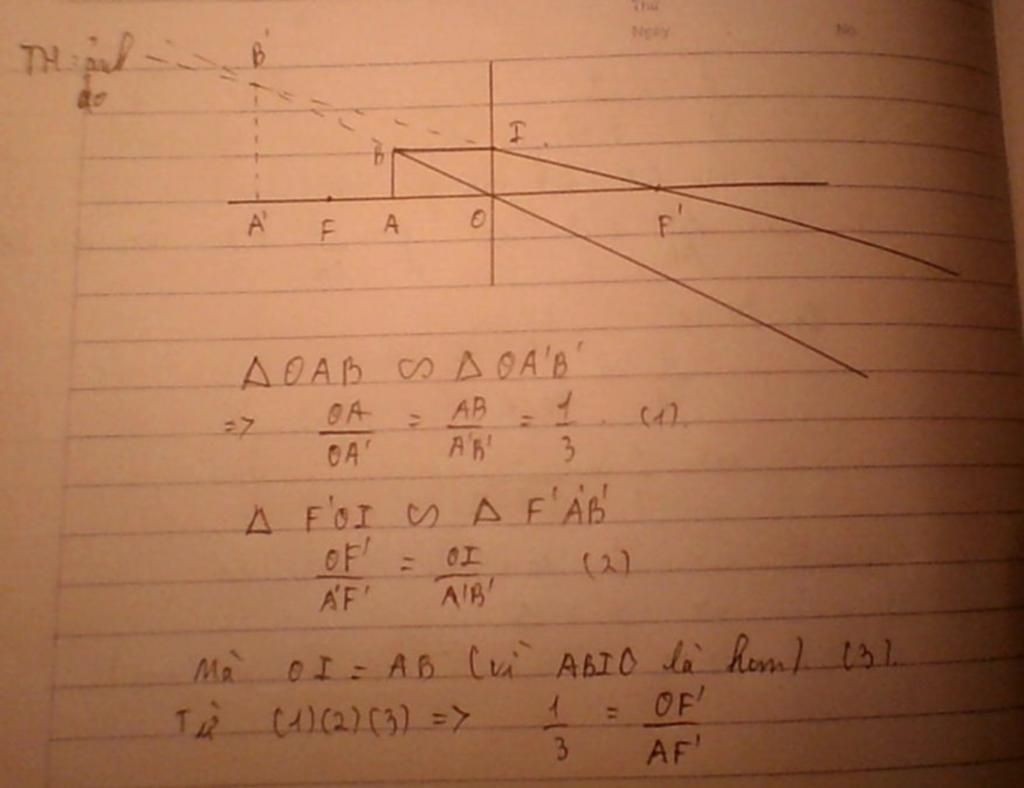 Thứ
Ngày No
TH: ảnh
ảo
B'
I
B
A' F A O F'
Δ OAB ∽ Δ OA'B'
=> OA/OA' = AB/A'B' = 1/3 . (1).
Δ F'OI ∽ Δ F'A'B'
OF'/A'F' = OI/A'B' (2)
Mà OI = AB (vì ABIO là hcn) (3).
Từ (1)(2)(3) => 1/3 = OF'/AF'